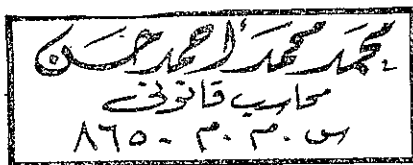 محمد محمد أحمد حسن
محاسب قانونى
س.م.م. ٨٦٥٠